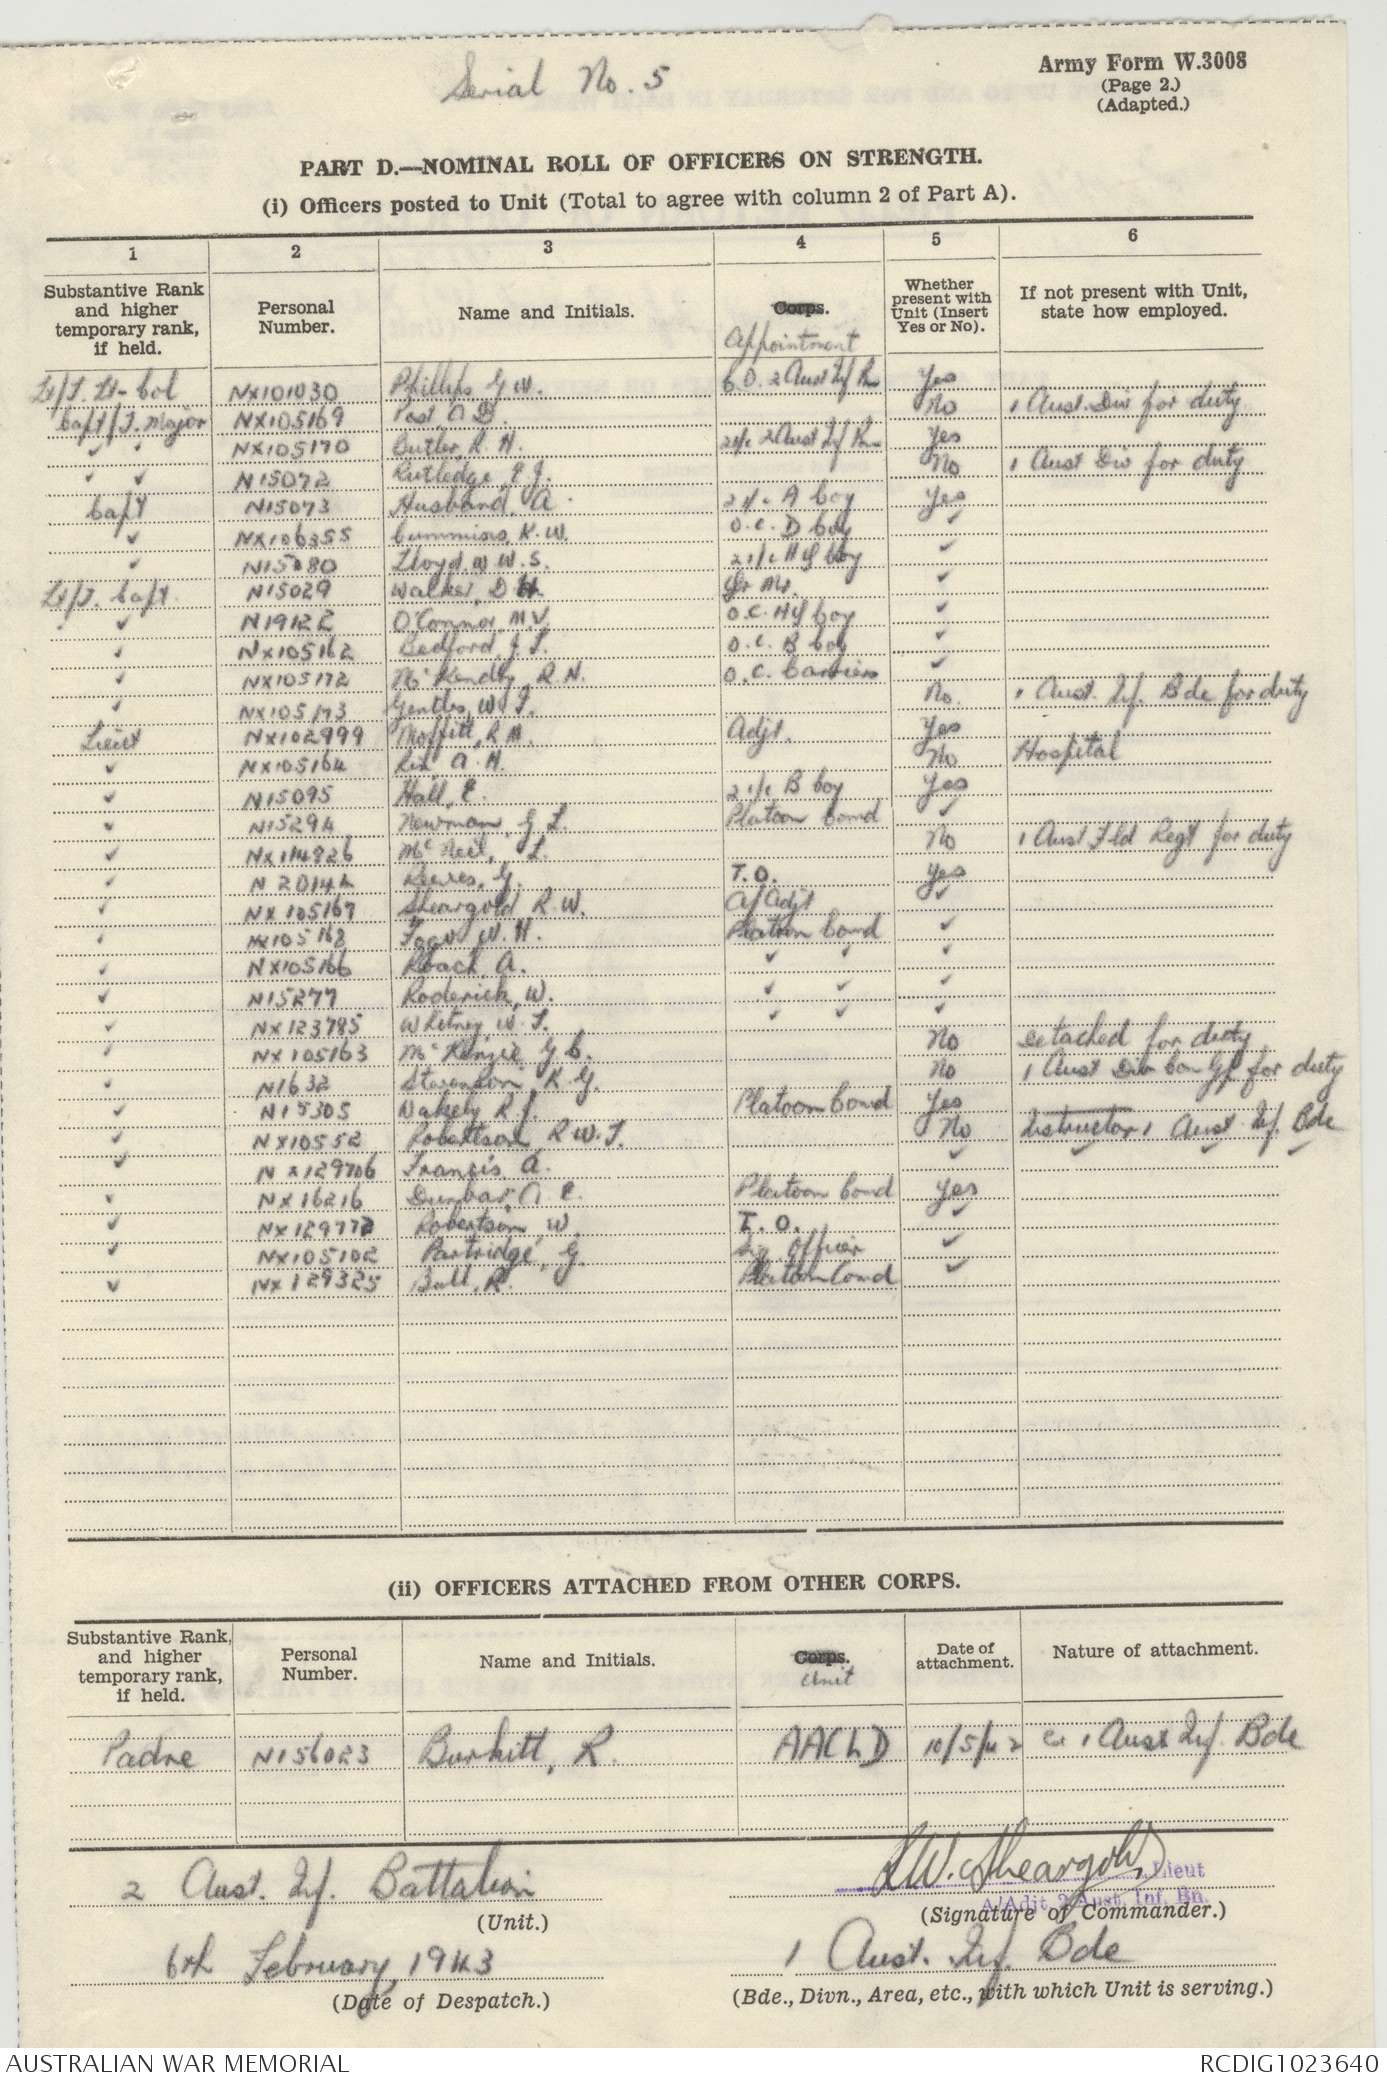 Serial No. 5
Army Form W.3008
(Page 2.)
(Adapted.)
PART D.—NOMINAL ROLL OF OFFICERS ON STRENGTH.
(i) Officers posted to Unit (Total to agree with column 2 of Part A).
1 2 3 4 5 6
Substantive Rank and higher temporary rank, if held.
Personal Number.
Name and Initials.
Corps.
Appointment
Whether present with Unit (Insert Yes or No).
If not present with Unit, state how employed.
Lt/T. Lt-Col NX101030 Phillips G W. C.O. 2 Aust Inf Bn Yes
Capt/T. Major NX105169 Post A B. No 1 Aust. Div for duty
✓ ✓ NX105170 Butler, R. H. 2i/c 2 Aust Inf Bn Yes
✓ ✓ N15072 Rutledge, T. J. No 1 Aust Div for duty
Capt N15073 Husband A 2i/c A Coy Yes
✓ NX106355 Cummins, K. W. O.C. D Coy ✓
✓ N15080 Lloyd, W. S. 2i/c HQ Coy ✓
Lt/T. Capt N15029 Walker, D H. Qr Mr. ✓
✓ N19122 O'Connor, M. V. O.C. HQ Coy ✓
✓ NX105162 Bedford, J. T. O.C. B Coy ✓
✓ NX105172 McKendry, R N. O.C. Carriers ✓
✓ NX105173 Gentles, W. T. No. 1 Aust. Inf. Bde for duty
Lieut NX102999 Moffitt, R M. Adjt. Yes
✓ NX105164 Rix A. H. No Hospital
✓ N15095 Hall, E. 2i/c B Coy Yes
✓ N15294 Newman, G L. Platoon Comd ✓
✓ NX114826 McNeil, L. No 1 Aust Fld Regt for duty
✓ N20144 Reeves, G. T.O. Yes
✓ NX105167 Sheargold R. W. A/Adjt ✓
✓ NX105168 W. H. Platoon Comd ✓
✓ NX105166 Roach A. ✓ ✓ ✓
✓ N15277 Roderick, W. ✓ ✓ ✓
✓ NX123785 Whitney W. T. ✓ ✓ ✓
✓ NX105163 McKenzie G C. No Detached for duty
✓ N1632 Stevenson, K. G. No 1 Aust Div Con Gp for duty
✓ N15305 Wakely R. J. Platoon Comd Yes
✓ NX10552 Robertson R W. T. No Instructor 1 Aust. Inf. Bde
✓ NX129706 Francis A. ✓ ✓ ✓ ✓
✓ NX16216 Dunbar, A. E. Platoon Comd Yes
✓ NX129772 Robertson W. I.O. ✓
✓ NX105102 Partridge, G. Sig Officer ✓
✓ NX129325 Bull, R. Platoon Comd ✓
(ii) OFFICERS ATTACHED FROM OTHER CORPS.
Substantive Rank, and higher temporary rank, if held.
Personal Number.
Name and Initials.
Corps.
Unit
Date of attachment.
Nature of attachment.
Padre N156023 Burkitt, R. AACLD 10/5/42 1 Aust Inf. Bde
2 Aust. Inf. Battalion
(Unit.)
R.W. Sheargold Lieut
A/Adjt 2 Aust. Inf. Bn.
(Signature of Commander.)
6th February, 1943
(Date of Despatch.)
1 Aust. Inf. Bde
(Bde., Divn., Area, etc., with which Unit is serving.)
AUSTRALIAN WAR MEMORIAL
RCDIG1023640